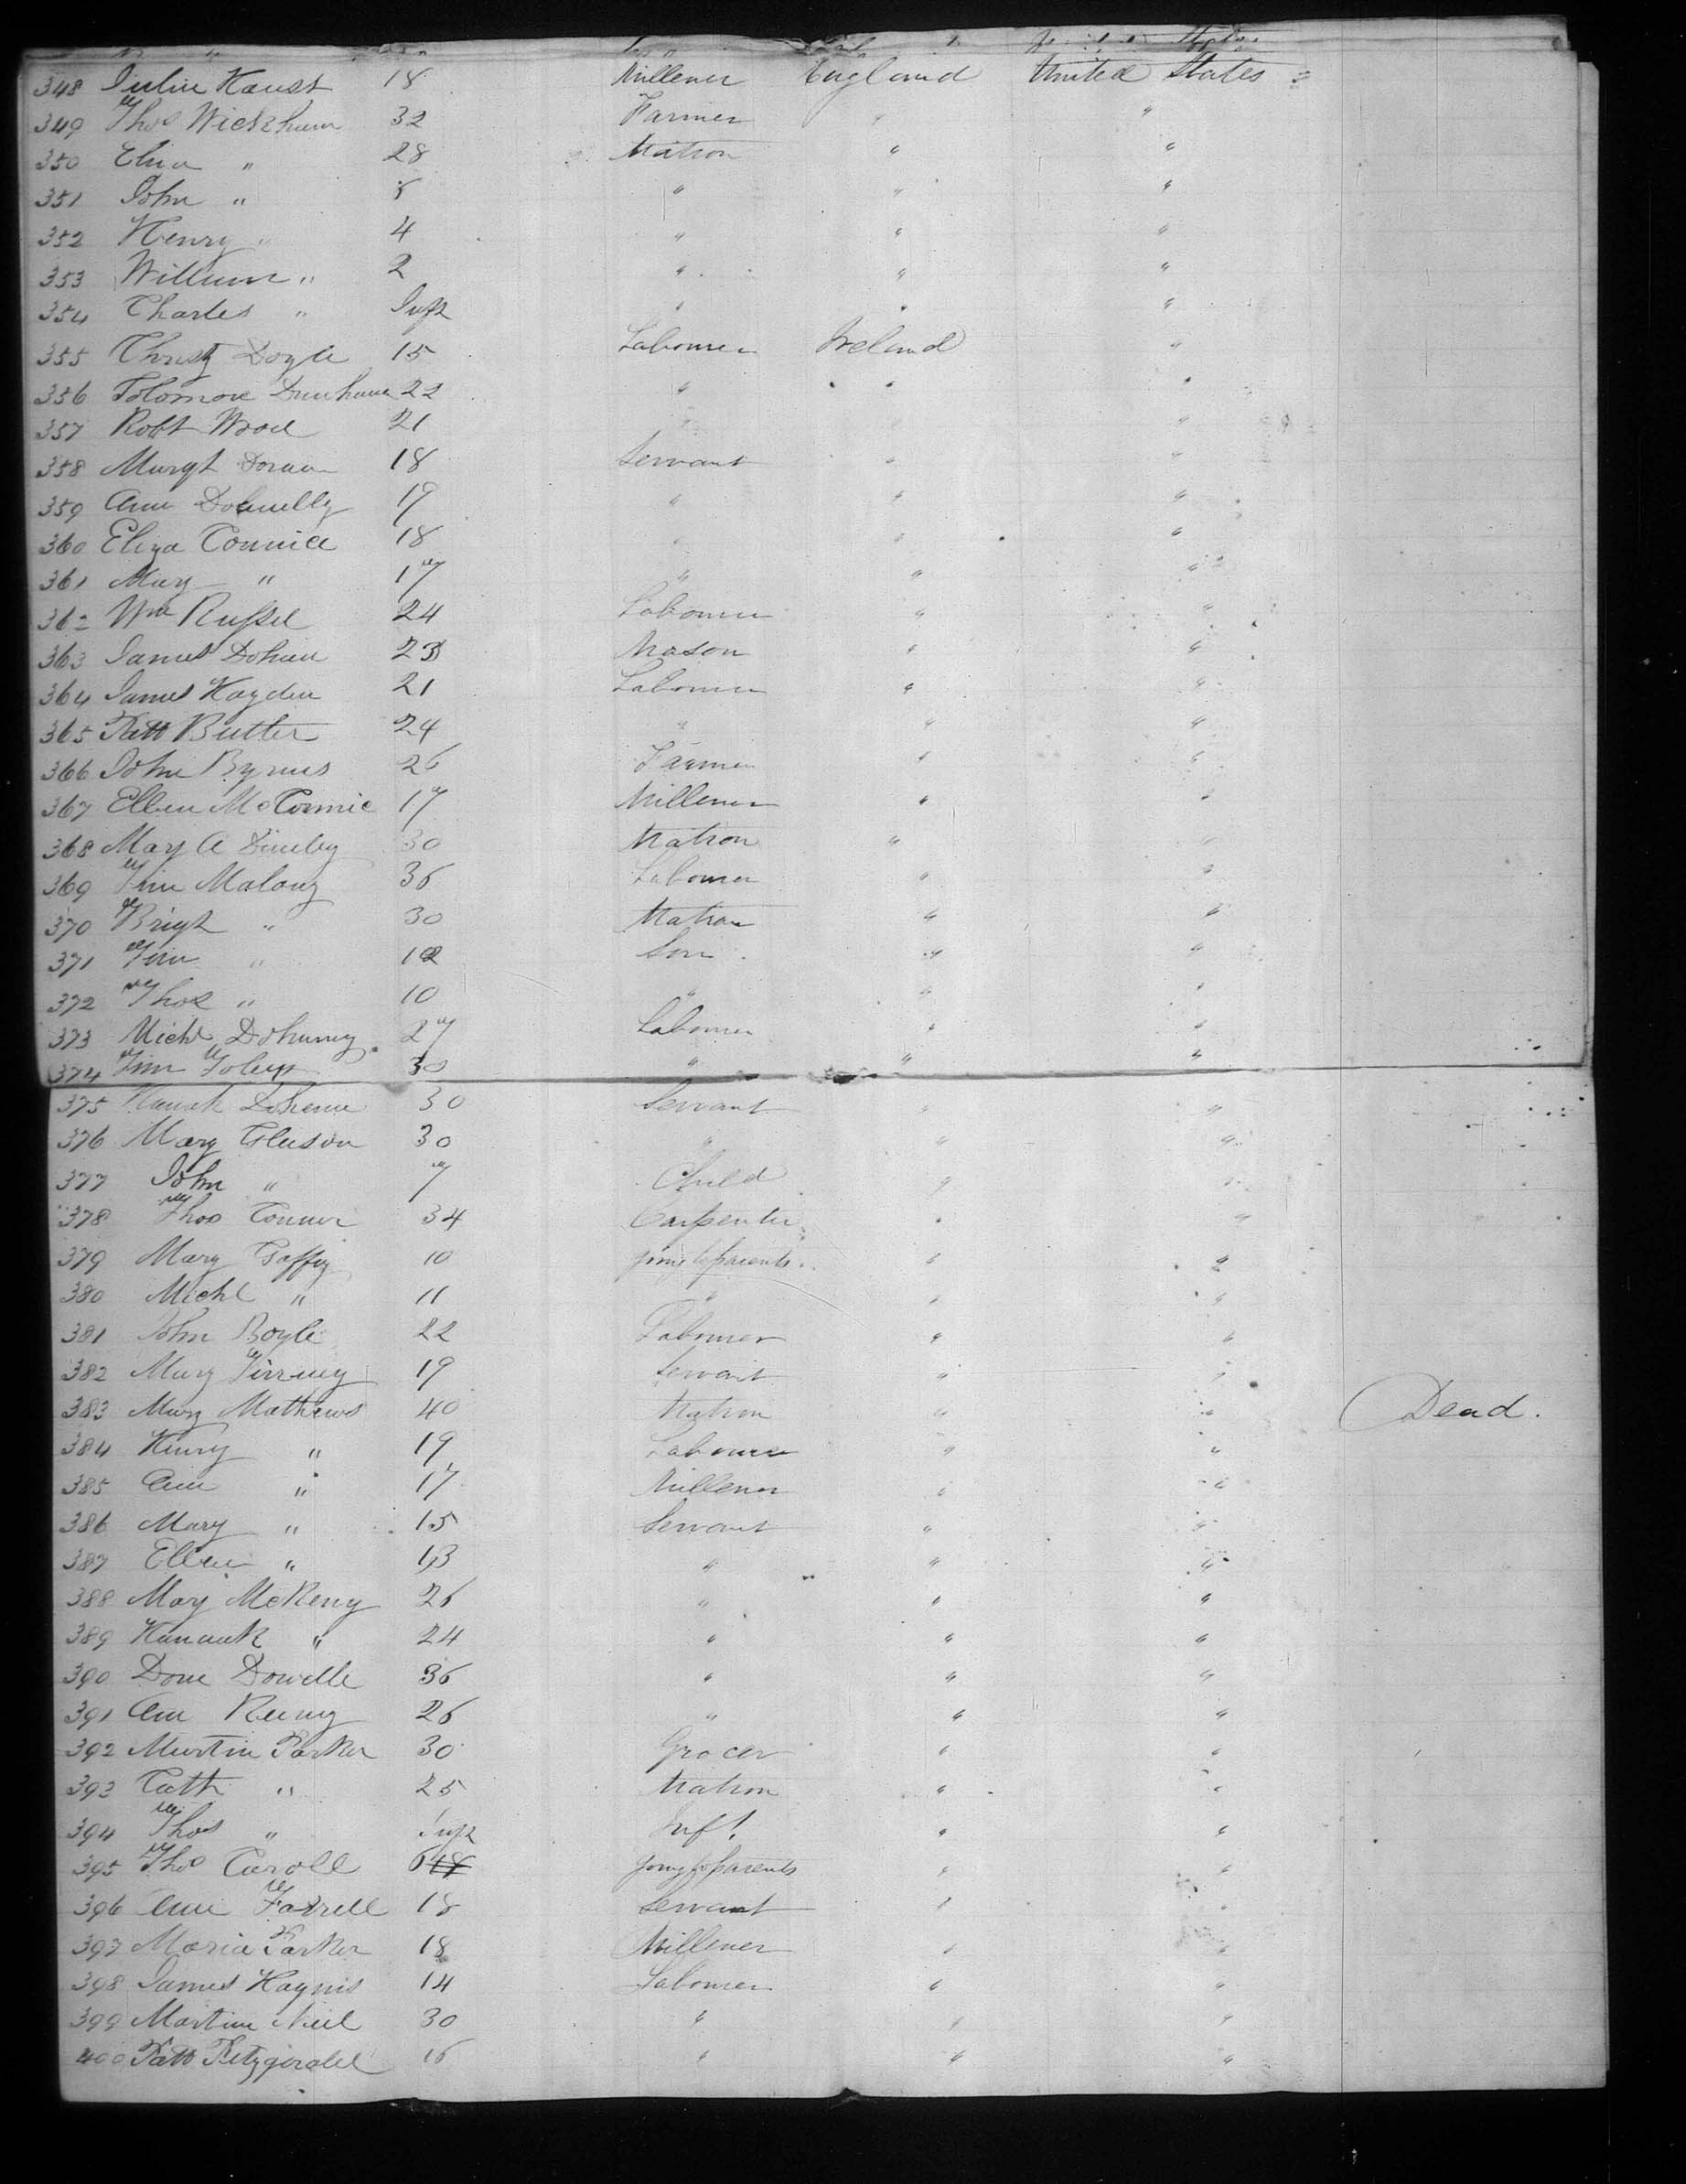 348 Julia Haust 18 Millener England United States
349 Thos Wickham 32 Farmer " "
350 Eliza " 28 Matron " "
351 John " " " "
352 Henry " 4 " " "
353 William " 2 " " "
354 Charles " Inft " " "
355 Christy Doyle 15 Labourer Ireland "
356 Solomon Dunham 22 " " "
357 Robt Wood 21 " " "
358 Margt Doran 18 Servant " "
359 Ann Donnelly 19 " " "
360 Eliza 18 " " "
361 Mary " 17 " " "
362 Wm Russel 24 Labourer " "
363 James 23 Mason " "
364 James Hayden 21 Labourer " "
365 Patt Butler 24 " " "
366 John Byrnes 26 Farmer " "
367 Ellen McCormic 17 Millener " "
368 Mary A 30 Matron " "
369 Tim Malony 36 Labourer " "
370 Brigt " 30 Matron " "
371 Tim " 12 Son " "
372 Thos " 10 " " "
373 Michl 27 Labourer " "
374 Tim 30 " " "
375 30 Servant " "
376 Mary Gleeson 30 " " "
377 John " 7 Child " "
378 Thos Conner 34 Carpenter " "
379 Mary Gaffey 10 going to parents " "
380 Michl " 11 " " "
381 John Boyle 22 Labourer " "
382 Mary 19 Servant " "
383 Mary Mathews 40 Matron " " Dead.
384 Henry " 19 Labourer " "
385 Ann " 17 Millener " "
386 Mary " 15 Servant " "
387 Ellen " 13 " " "
388 Mary McKeny 26 " " "
389 Hanauh " 24 " " "
390 Dowdle 36 " " "
391 Ann 26 " " "
392 Martin Parker 30 Grocer " "
393 Cath " 25 Matron " "
394 Thos " Inft Inft. " "
395 Thos Caroll going to parents " "
396 Ann Farrell 18 Servant " "
397 Maria Parker 18 Millener " "
398 James Haynis 14 Labourer " "
399 Martin Neil 30 " " "
400 Patt Fitzgerald 16 " " "